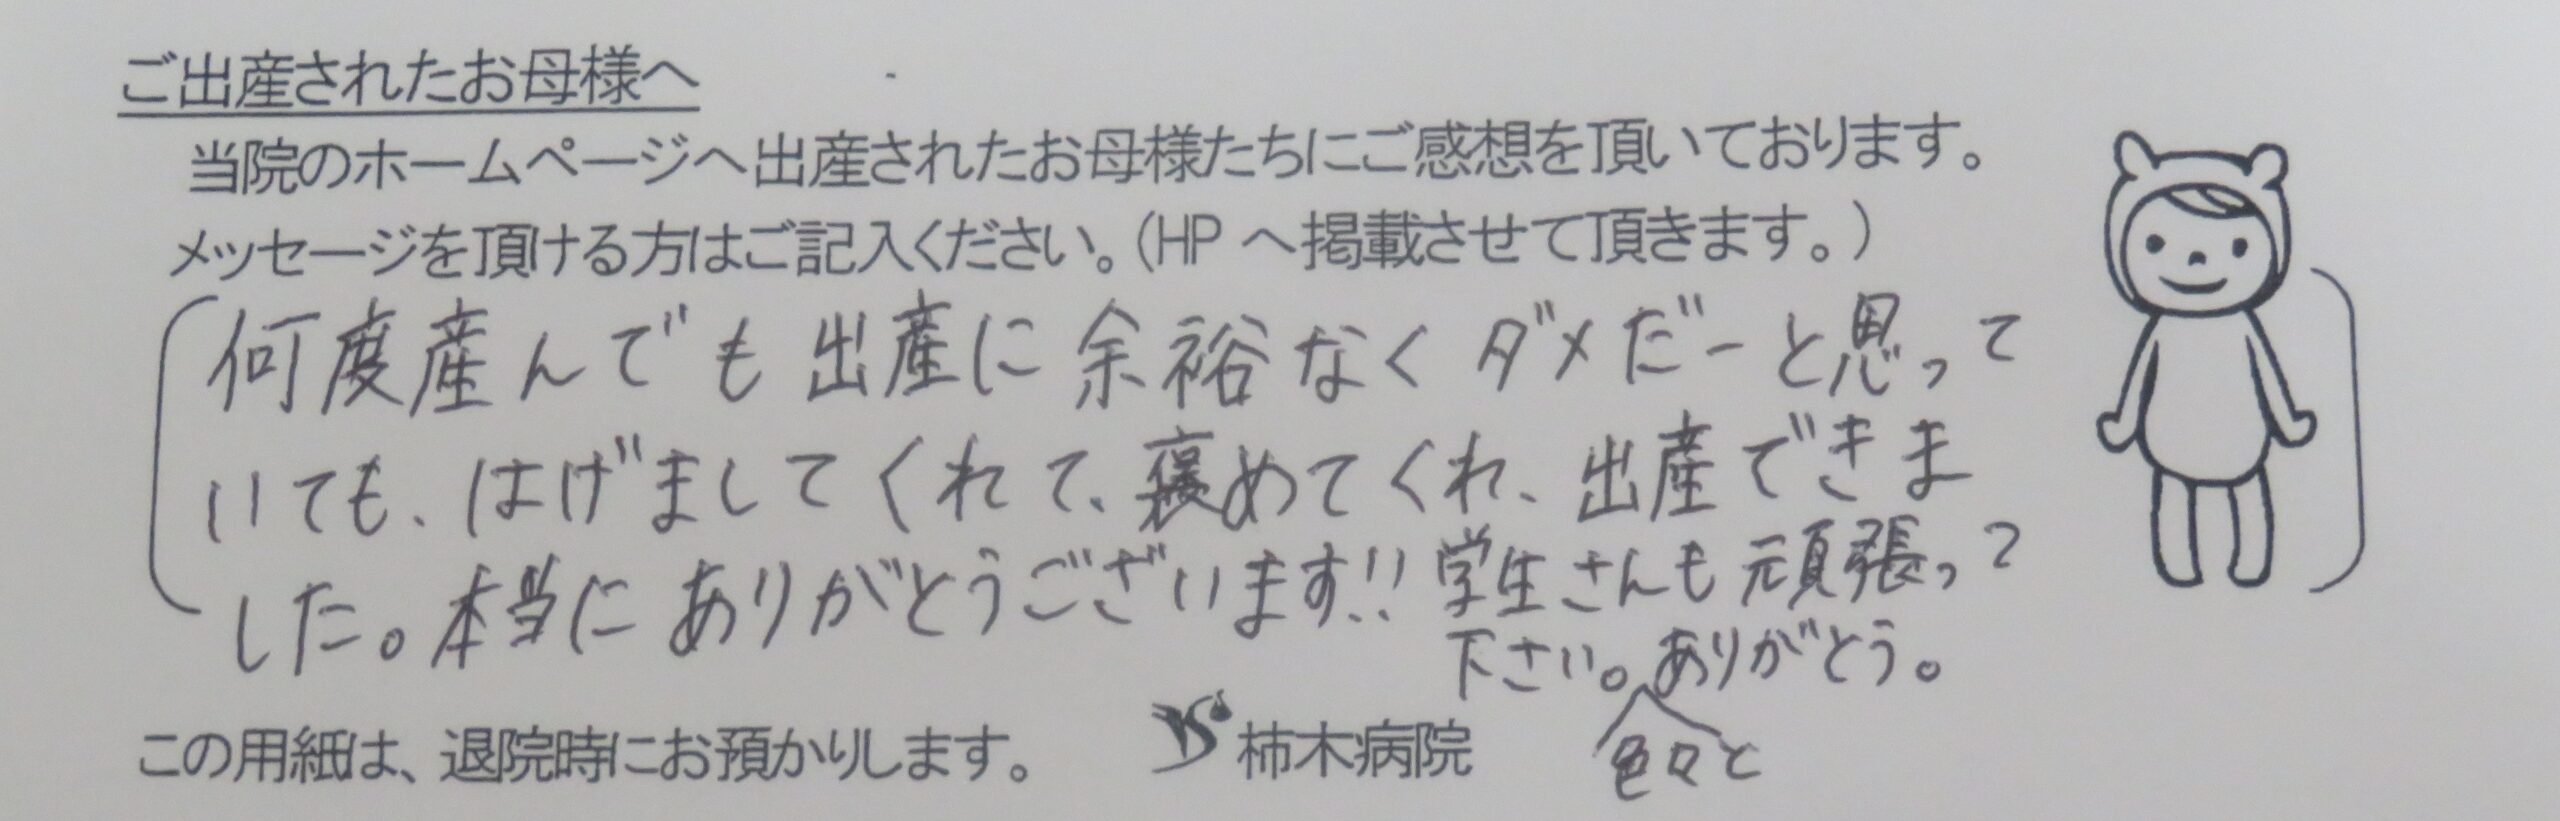 ご出産されたお母様へ
当院のホームページへ出産されたお母様たちにご感想を頂いております。
メッセージを頂ける方はご記入ください。（HP へ掲載させて頂きます。）
何度産んでも出産に余裕なくダメだーと思って
いても、はげましてくれて、褒めてくれ、出産できま
した。本当にありがとうございます!! 学生さんも頑張って
下さい。色々とありがとう。
この用紙は、退院時にお預かりします。 柿木病院